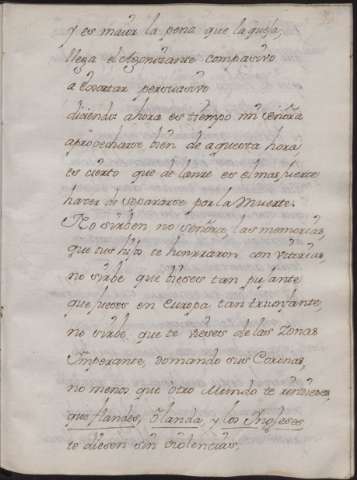 y es maior la pena que la queja,
llega el Agonizante compasivo
a exortar persuasivo
diciendo ahora es tiempo mi señora
aprovecharse bien de aquesta hora
es cierto que de lance es el mas fuerte
haver de separarse por la Muerte.
No sirben no señora, las memorias,
que sus hijos te honrraron con victorias,
no sirbe que vieses tan pujante
que fueses en Europa tan triunfante,
no sirbe, que te vieses de las Zonas
Imperante, domando sus Coronas,
no menos que otro Mundo te rindiese,
que flandes, Olanda, y los Ingleses
te diesen sin violencias,